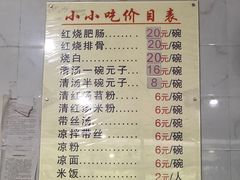 小小吃价目表
红烧肥肠 20元/碗
红烧排骨 20元/碗
烧白 20元/碗
清汤一碗元子 16元/碗
清汤半碗元子 8元/碗
清红汤苕粉 6元/碗
清红汤米粉 6元/碗
带丝汤 6元/碗
凉拌带丝 6元/碗
凉粉 6元/碗
凉面 6元/碗
米饭 2元/人